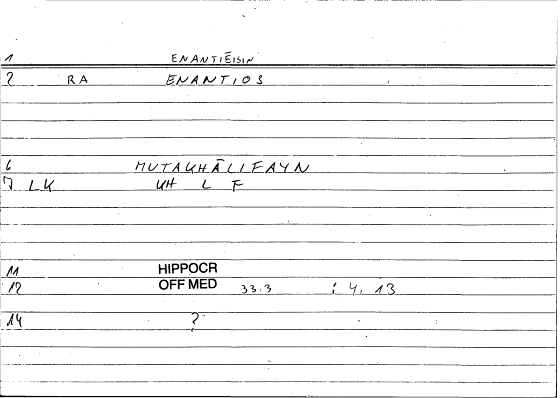 1 ENANTIĒISIN
2 RA ENANTIOS
6 MUTAKHĀLIFAYN
7 LK KH L F
11 HIPPOCR
12 OFF MED 33.3 : 4, 13
14 ?